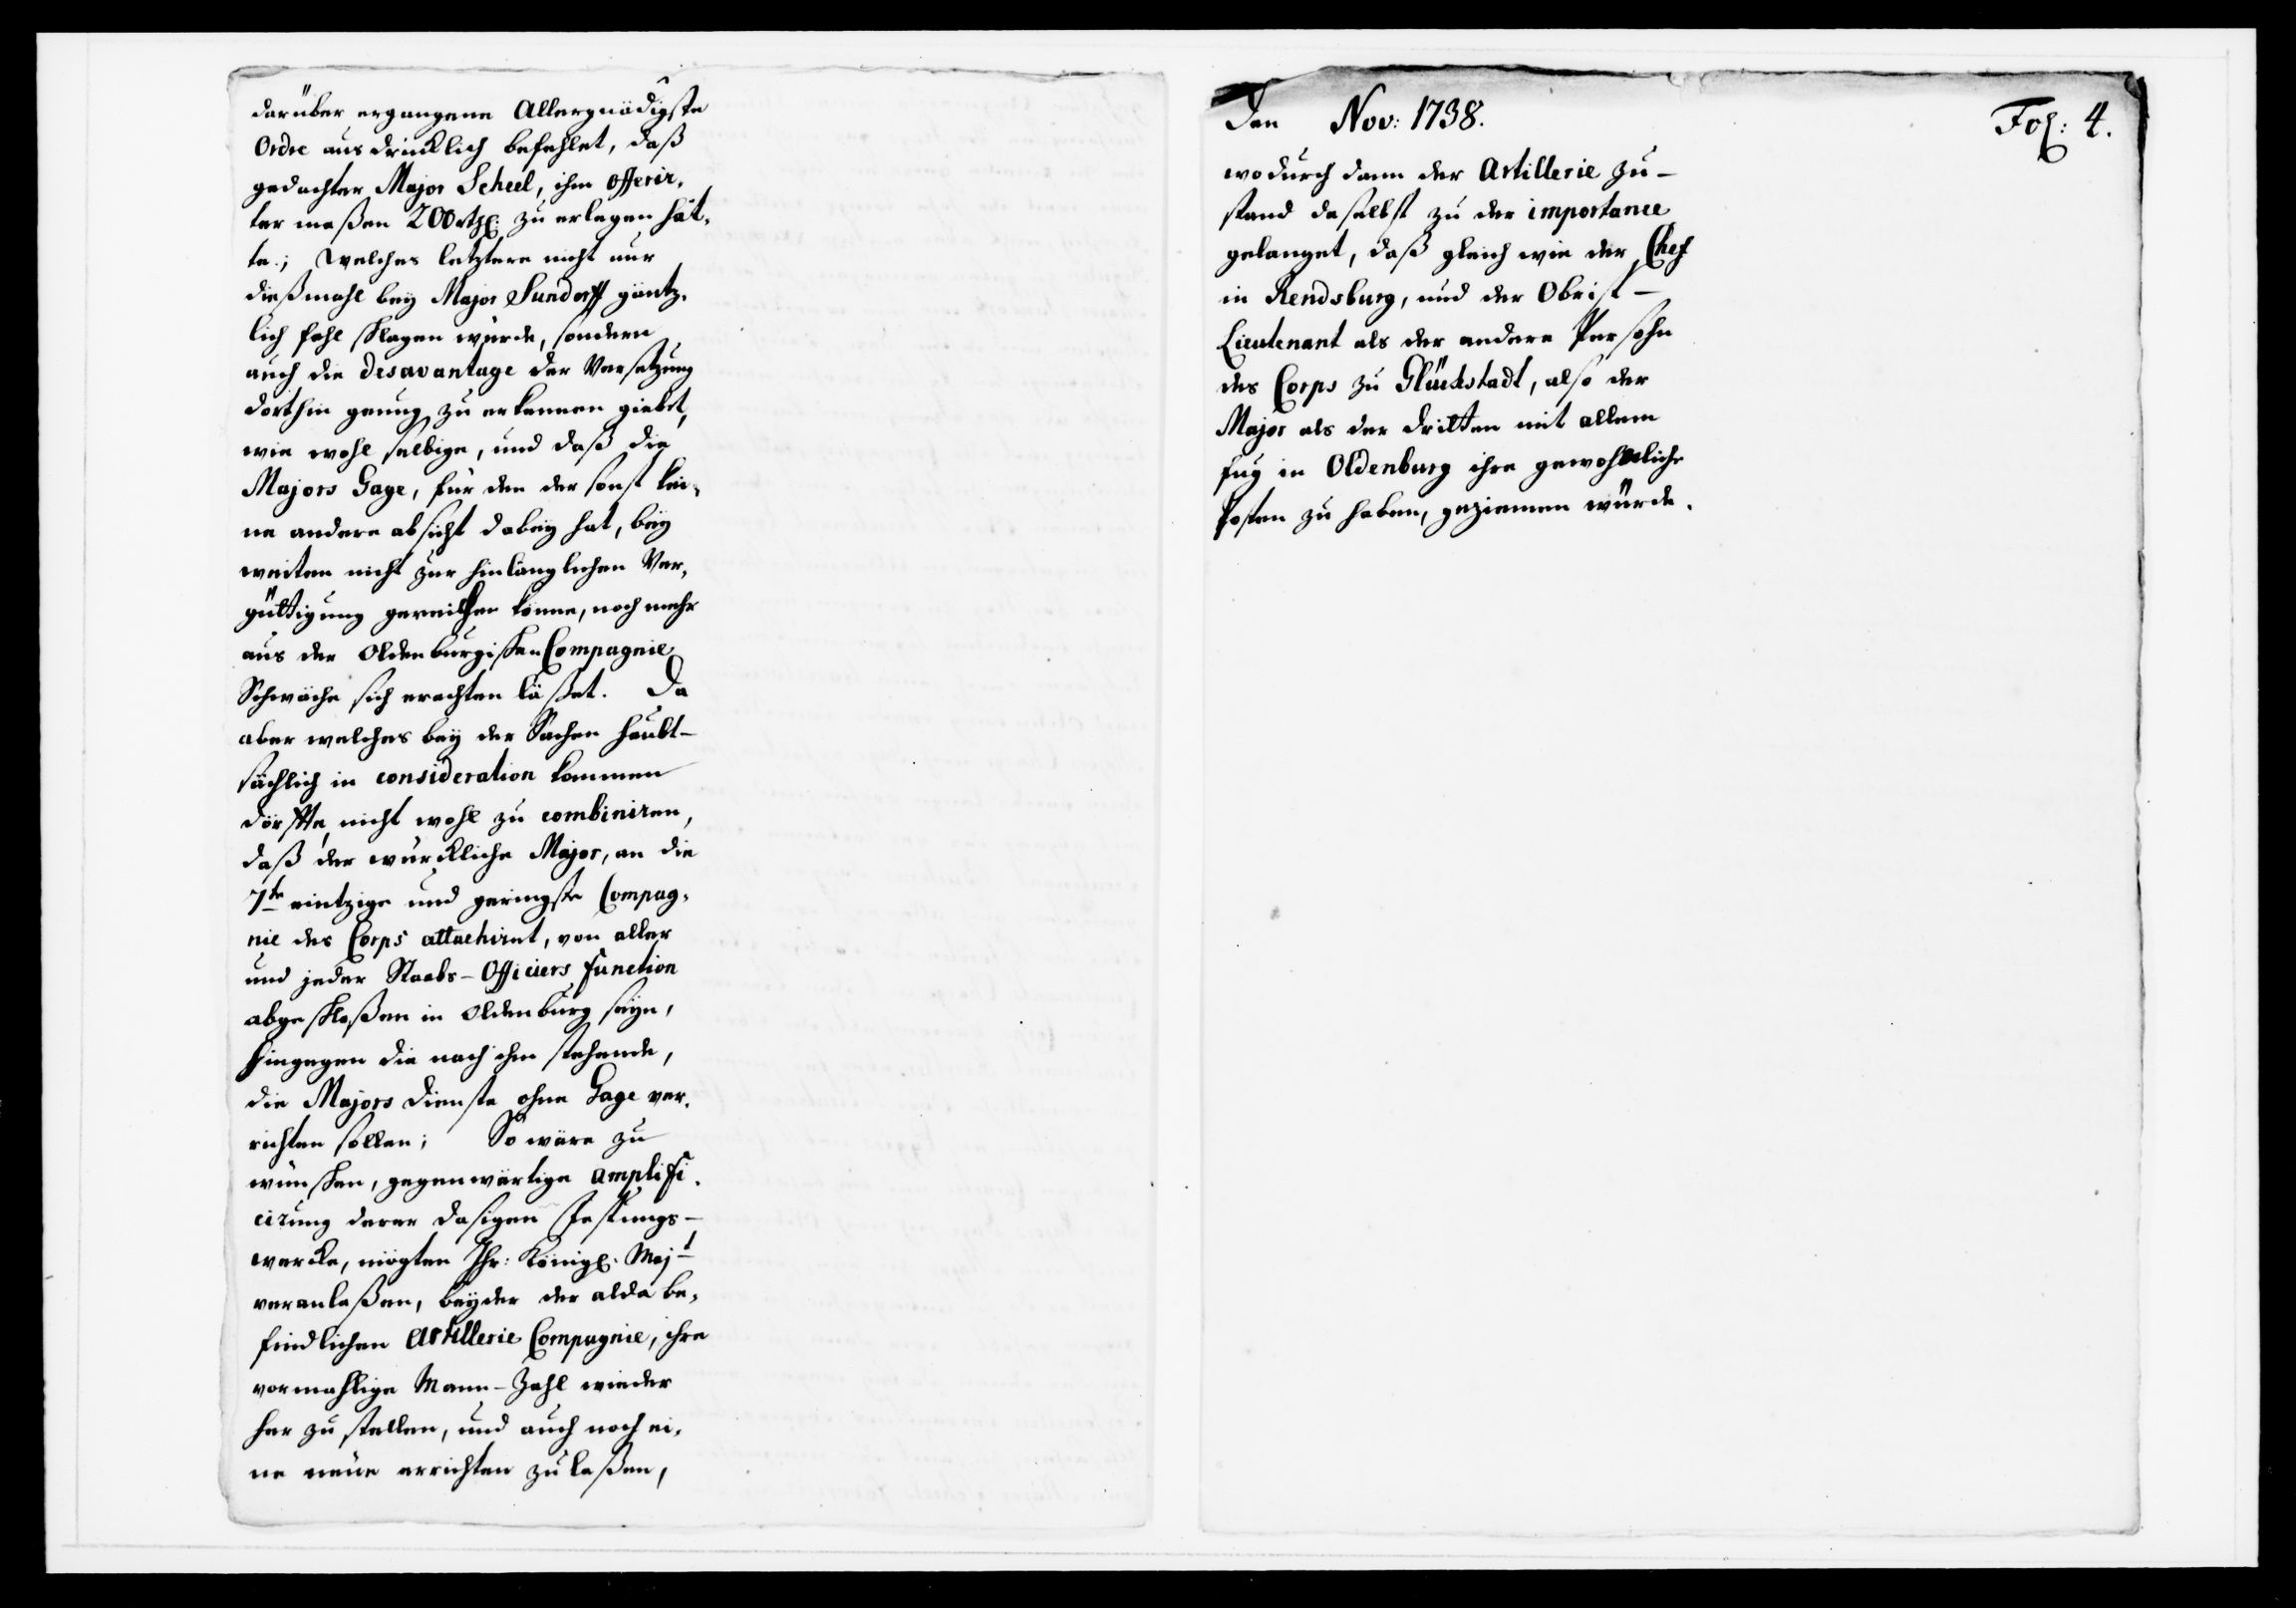 darüber ergangene Allergnädigste
Ordre ausdrücklich befehlet, daß
gedachter Major Scheel, ihm offerir,
ter maßen 200 rthl: zu erlegen hät,
te.; Welches letztere nicht nur
dießmahl bey Major Sundorff gäntz,
lich fehl schlagen würde, sondern
auch die desavantage der Versetzung
dorthin genug zu erkennen giebet,
wie wohl selbige, und daß die
Majors Gage, für den der sonst kei,
ne andere absicht dabey hat, bey
weiten nicht zur hinlänglichen Ver,
güttigung gereichen könne, noch mehr
aus der Oldenburgischen Compagnie
Schwäche sich erachten läßet. Da
aber welches bey der Sachen haubt-
sächlich in consideration kommen
dörffte, nicht wohl zu combiniren,
daß der würckliche Major, an die
7te eintzige und geringste Compag,
nie des Corps attachiret, von aller
und jeder Staabs-Officiers function
abgeschloßen in Oldenburg seyn,
hingegen die nach ihm stehende,
die Majors Dienste ohne Gage ver,
richten sollen; So wäre zu
wünschen, gegenwärtige amplifi,
cirung derer dasigen Festungs-
wercke, mögten Ihr: Königl: Majt
veranlaßen, beyder der alda be,
findlichen Artillerie Compagnie, ihre
vormahlige Mann-Zahl wieder
her zu stellen, und auch noch ei,
ne neue errichten zu laßen,
Den Nov: 1738.
Fol: 4.
wodurch dann der Artillerie Zu-
stand daselbst zu der importance
gelanget, daß gleich wie der Chef
in Rendsburg, und der Obrist-
Lieutenant als der andere Persohn
des Corps zu Glückstadt, also der
Major als der dritten mit allem
fug in Oldenburg ihre gewohnliche
Posten zu haben, geziemen würde.